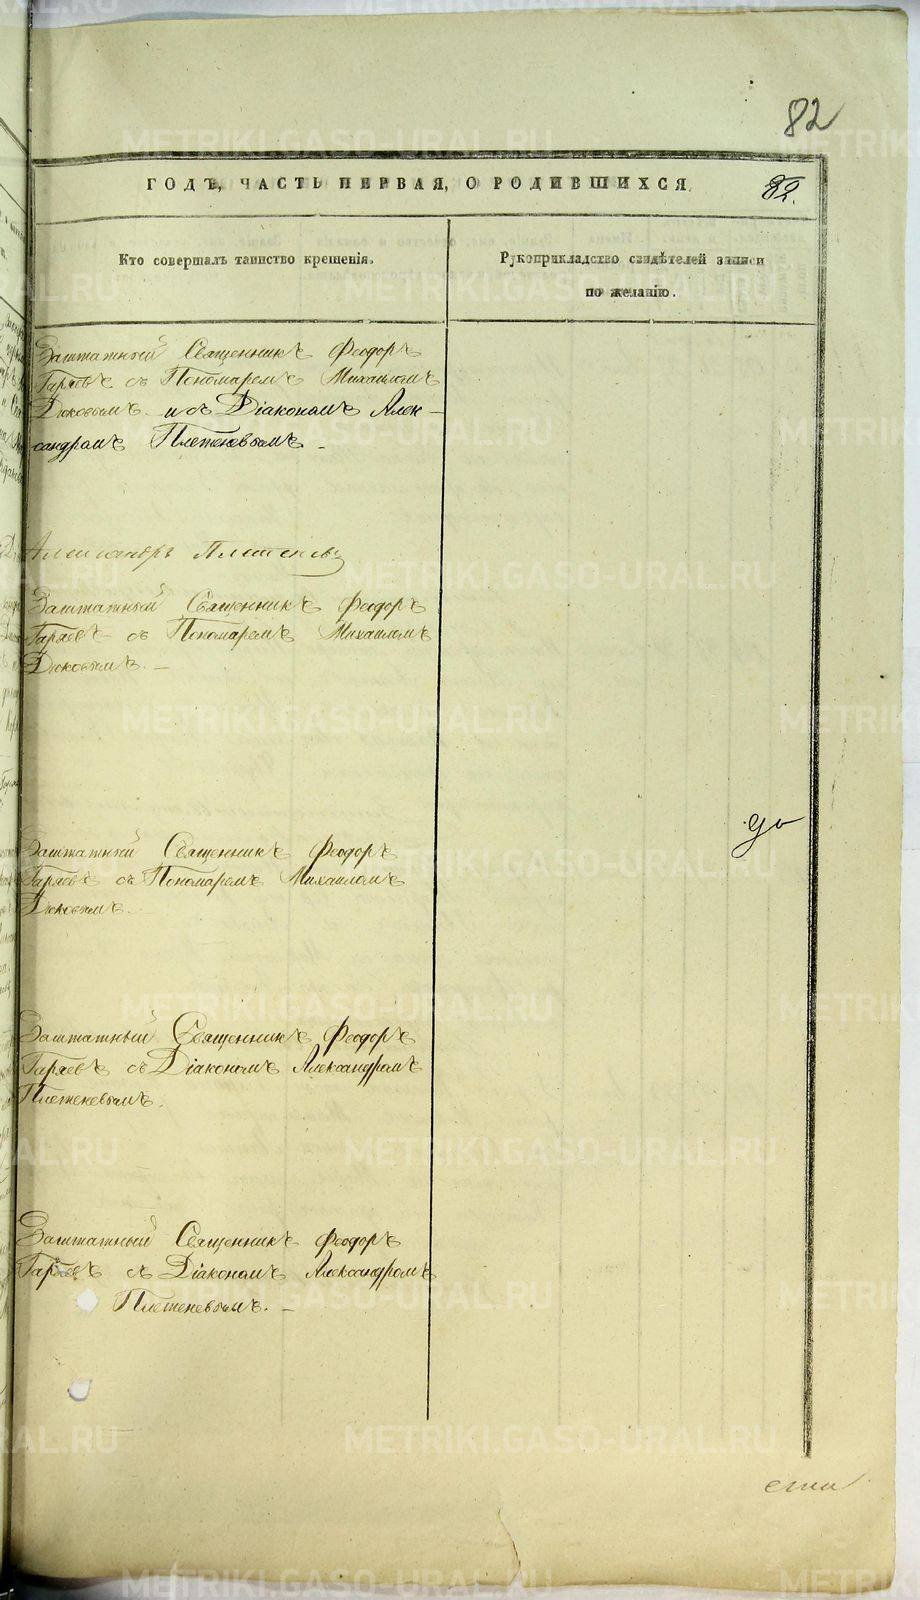 82
ГОДЪ, ЧАСТЬ ПЕРВАЯ, О РОДИВШИХСЯ 82.
Кто совершалъ таинство крещенія.
Рукоприкладство свидѣтелей записи
по желанію.
Заштатный Священникъ Феодоръ
Гаряевъ съ Пономаремъ Михаиломъ
Дюковымъ и съ Діакономъ Алек-
сандромъ Плетеневымъ. -
Александръ Плетеневъ
Заштатный Священникъ Феодоръ
Гаряевъ съ Пономаремъ Михаиломъ
Дюковымъ. -
Заштатный Священникъ Феодоръ
Гаряевъ съ Пономаремъ Михаиломъ
Дюковымъ.
Заштатный Священникъ Феодоръ
Гаряевъ съ Діакономъ Александромъ
Плетеневымъ.
Заштатный Священникъ Феодоръ
Гаряевъ съ Діакономъ Александромъ
Плетеневымъ. -
METRIKI.GASO-URAL.RU